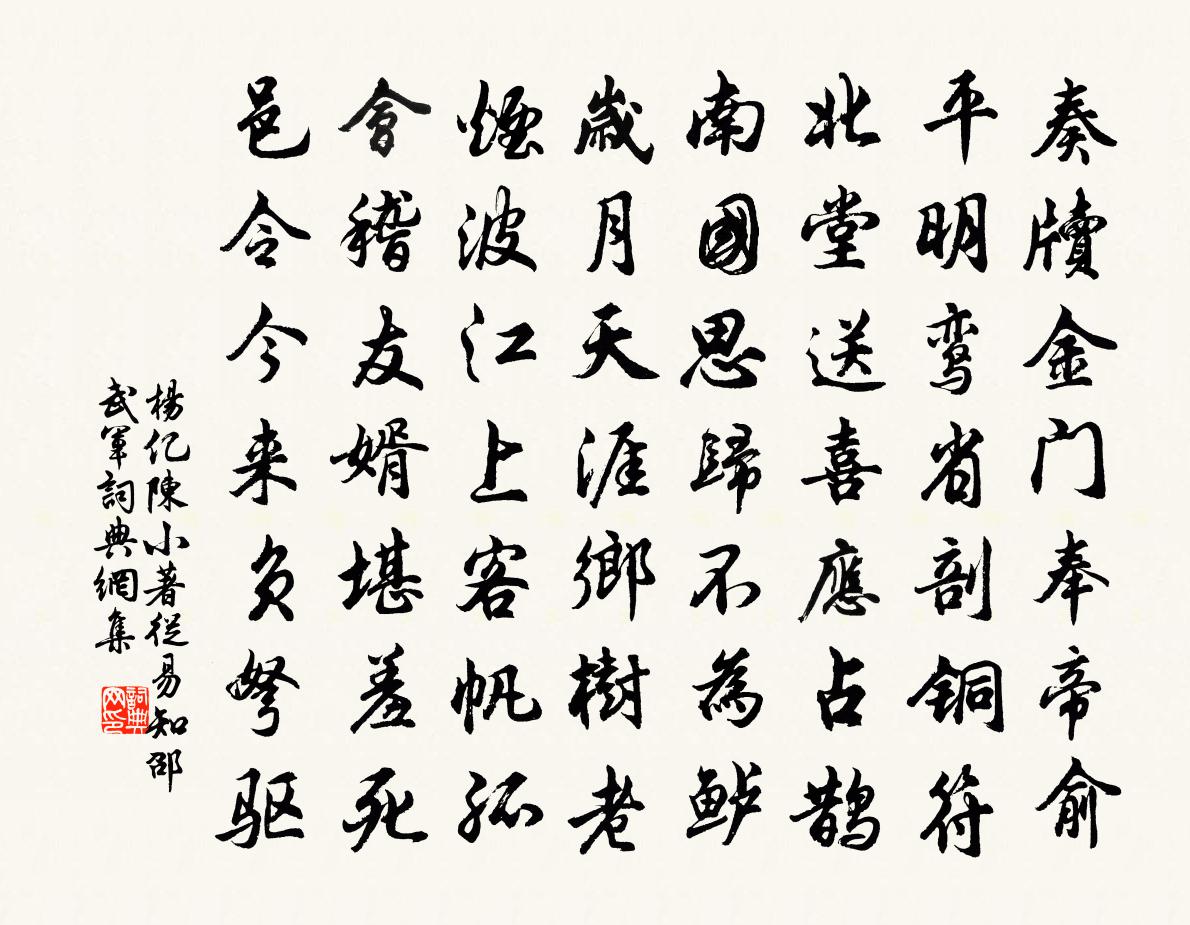 奏牘金门奉帝俞
平明鸾省剖铜符
北堂送喜應占鹊
南國思歸不為鲈
歲月天涯鄉樹老
煙波江上客帆孤
會稽友婿堪羞死
邑令今来負弩驱
楊亿陳小著從易知邵
武軍詞典網集
詞典
网印